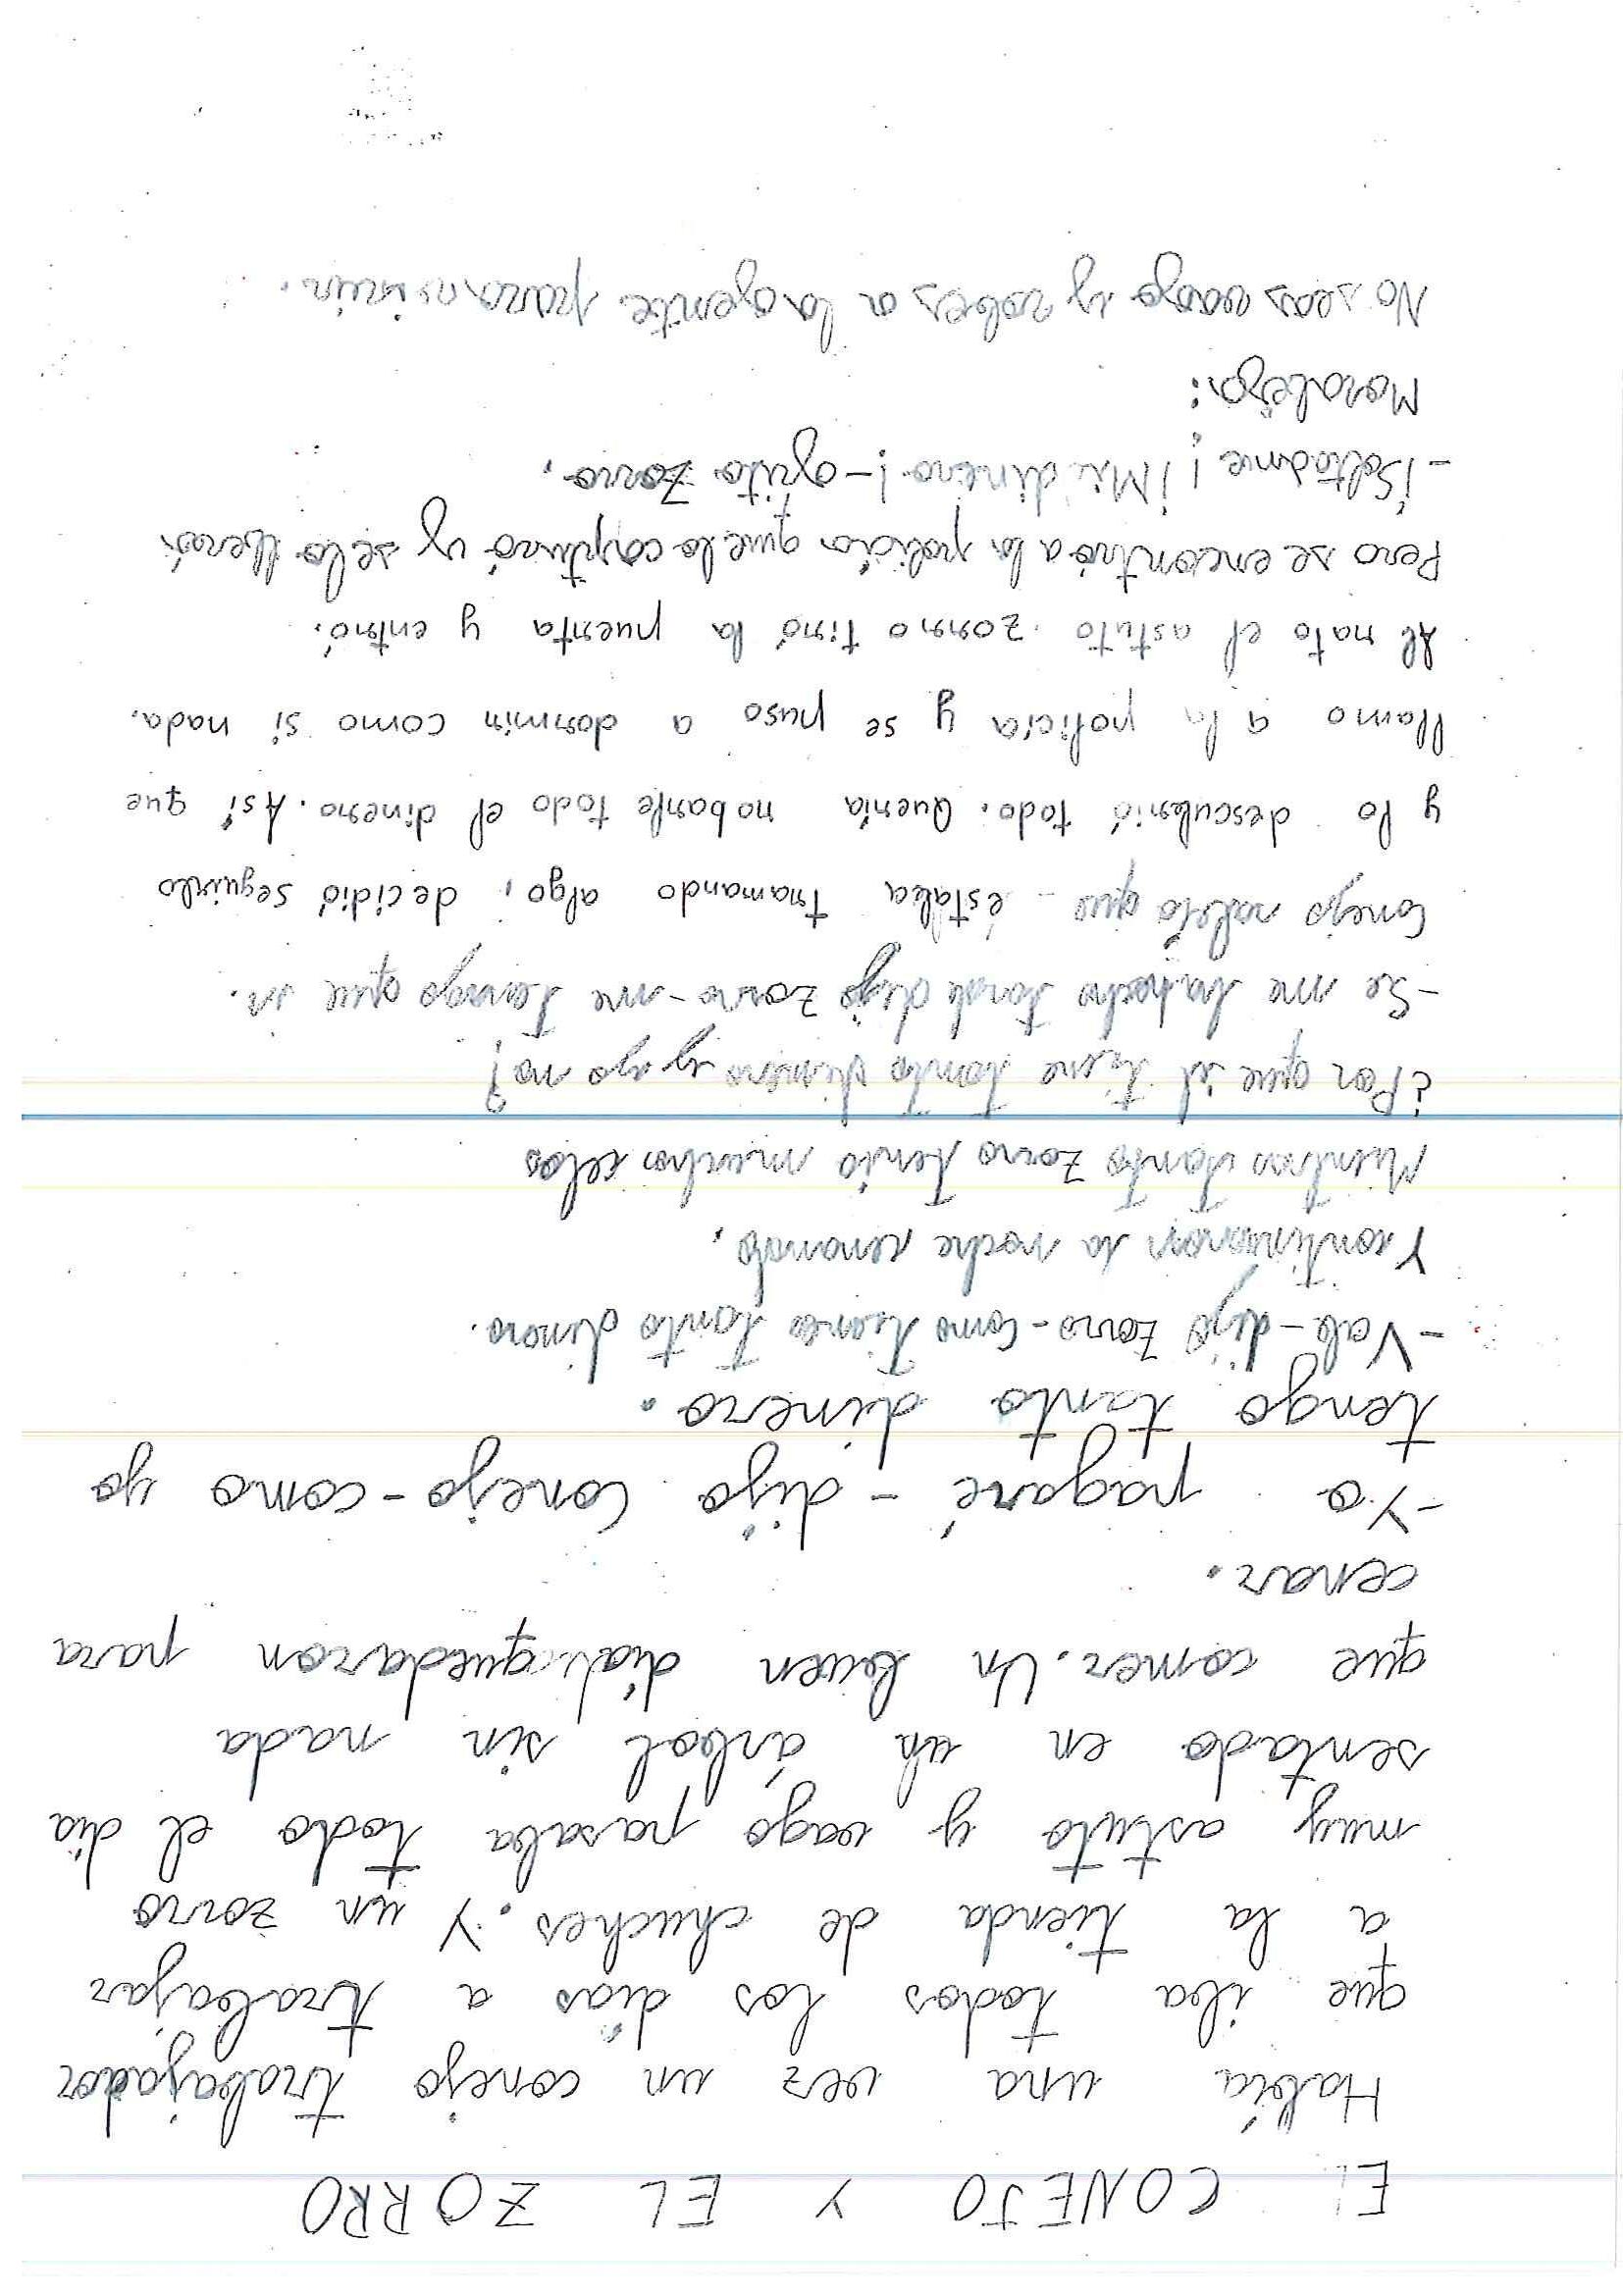 EL CONEJO Y EL ZORRO
Había una vez un conejo trabajador
que iba todos los días a trabajar
a la tienda de chuches. Y un zorro
muy astuto y vago pasaba todo el día
sentado en un árbol sin nada
que comer. Un buen día quedaron para
cenar.
-Yo pagaré - dijo Conejo - como yo
tengo tanto dinero.
- Vale - dijo Zorro - Como tienes tanto dinero.
Y continuaron la noche cenando.
Mientras tanto Zorro tenía muchos celos
¿Por que él tiene tanto dinero y yo no?
- Se me ha hecho tarde dijo Zorro - me tengo que ir.
Conejo sabía que estaba tramando algo, decidió seguirlo
y lo descubrió todo. Quería robarle todo el dinero. Así que
llamo a la policía y se puso a dormir como si nada.
Al rato el astuto zorro tiró la puerta y entró.
Pero se encontró a la policía que lo capturó y se lo llevó.
- ¡Soltadme! ¡Mi dinero! - grito Zorro.
Moraleja:
No seas vago y robes a la gente para vivir.